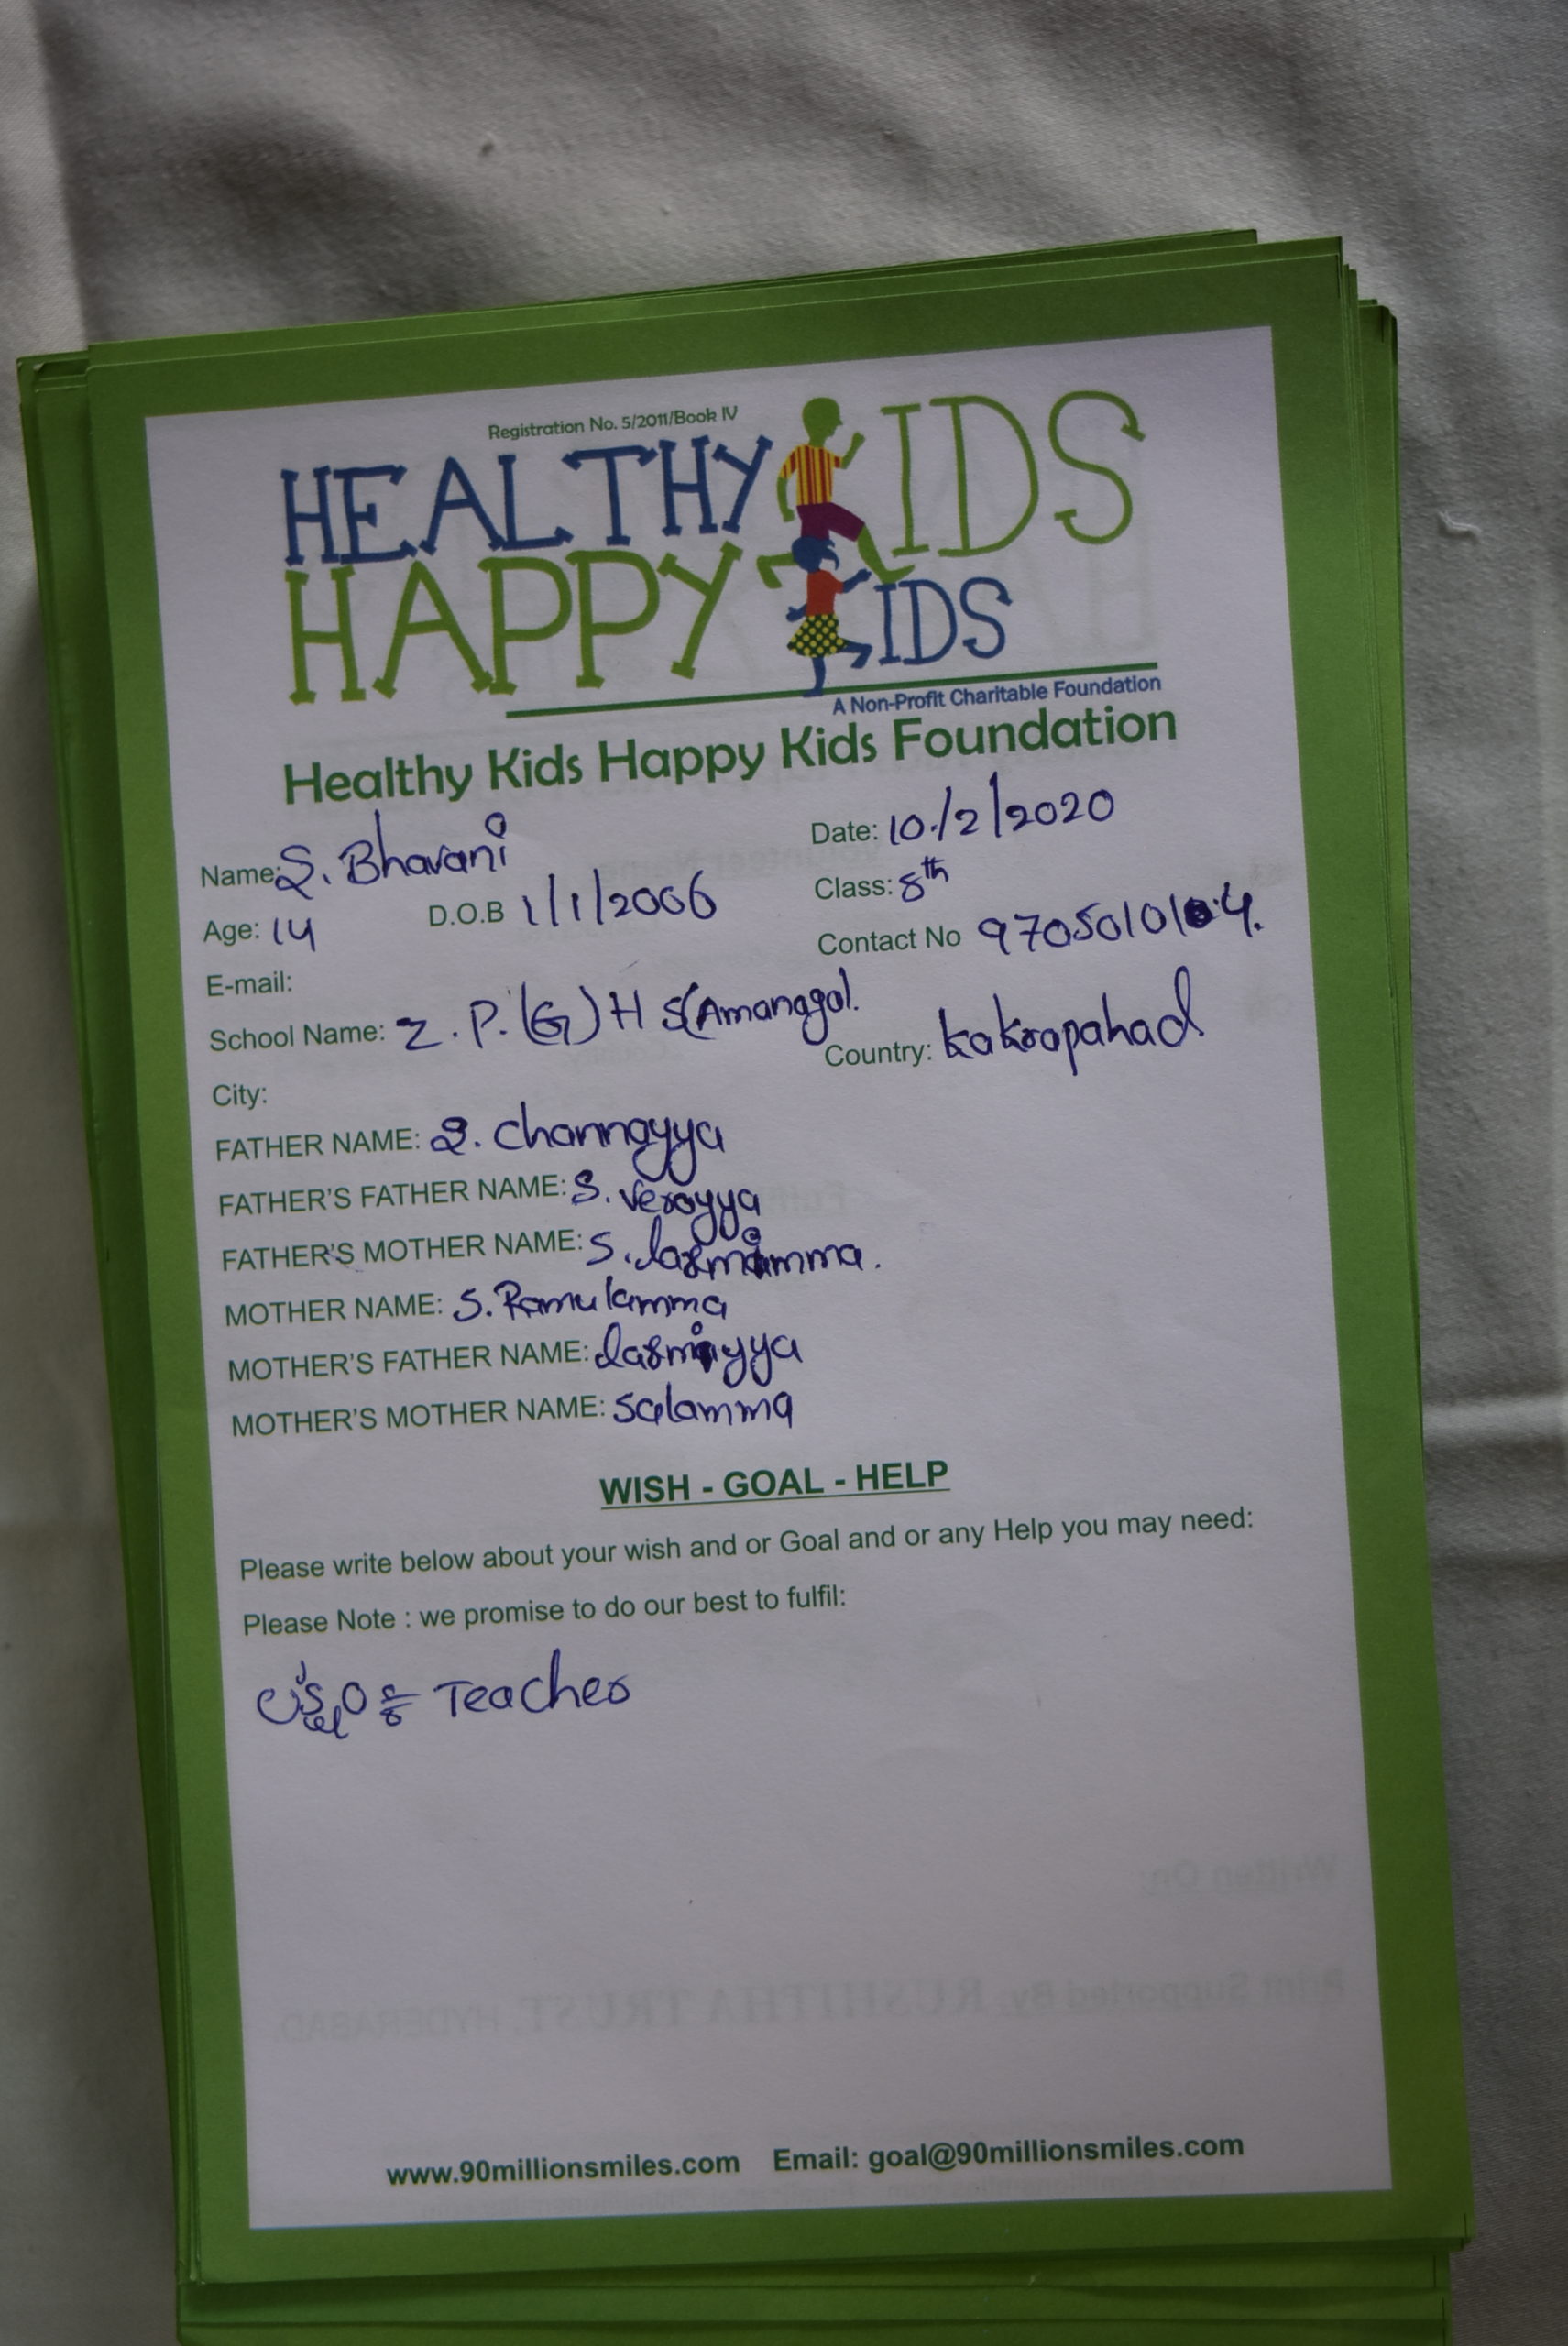 Registration No. 5/2011/Book IV
HEALTHY KIDS
HAPPY KIDS
A Non-Profit Charitable Foundation
Healthy Kids Happy Kids Foundation
Name: S. Bhavani Date: 10/2/2020
Age: 14 D.O.B 1/1/2006 Class: 8th
E-mail: Contact No
School Name: Z.P.(G)H S(Amanagal.
City: Country: kakrapahad
FATHER NAME: S. channayya
FATHER'S FATHER NAME: S. verayya
FATHER'S MOTHER NAME: S.
MOTHER NAME: S. Ramulamma
MOTHER'S FATHER NAME:
MOTHER'S MOTHER NAME: salamma
WISH - GOAL - HELP
Please write below about your wish and or Goal and or any Help you may need:
Please Note : we promise to do our best to fulfil:
Teacher
Written On:
Print Supported By, RUSHITHA TRUST, HYDERABAD.
www.90millionsmiles.com Email: goal@90millionsmiles.com